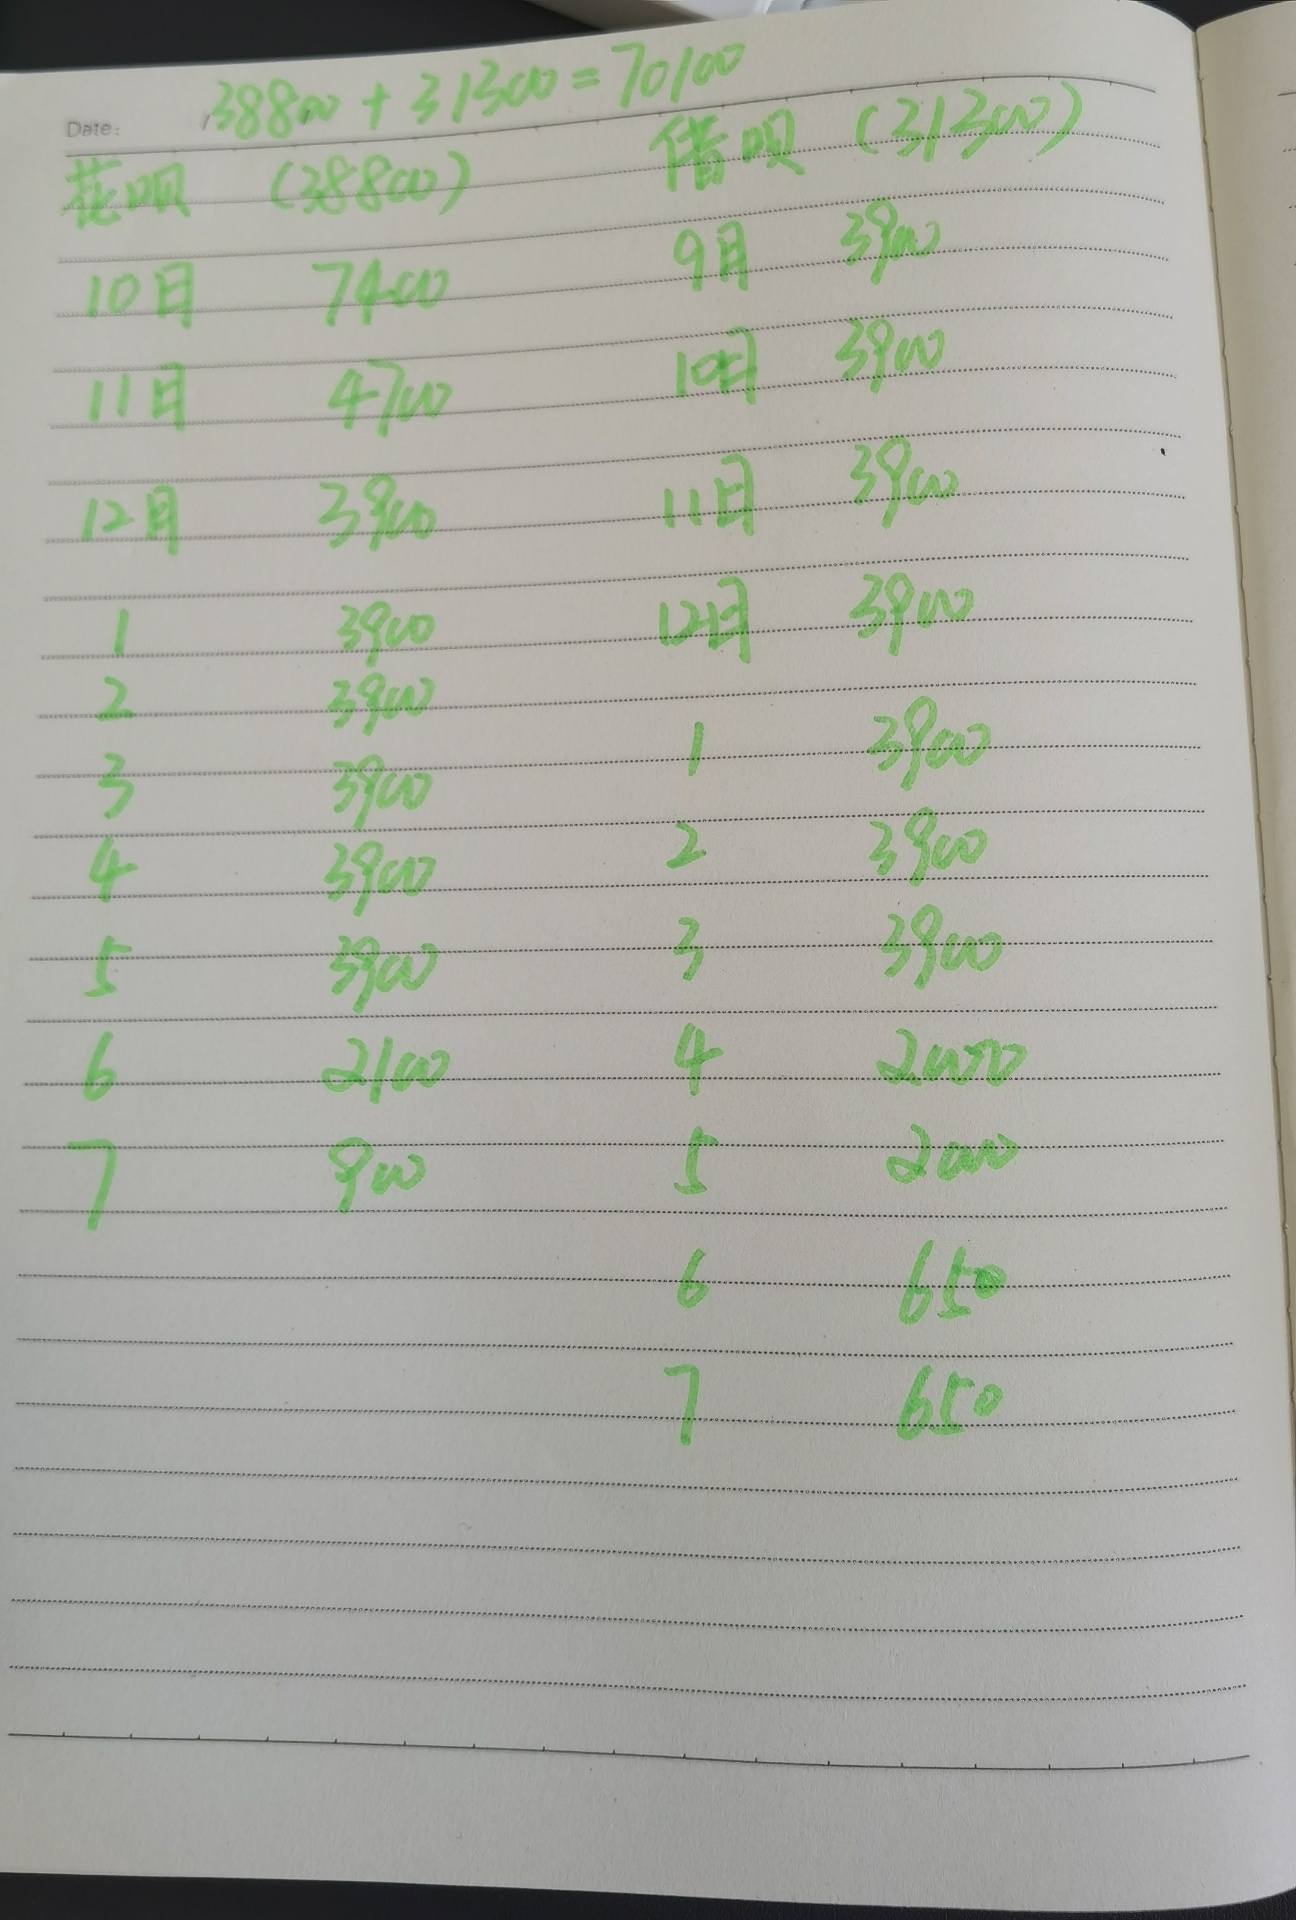 38800 + 31300 = 70100
Date:
花呗 (38800)
10月 7400
11月 4700
12月 3900
1 3900
2 3900
3 3900
4 3900
5 3900
6 2100
7 900
借呗 (31300)
9月 3900
10月 3900
11月 3900
12月 3900
1 3900
2 3900
3 3900
4 2000
5 2000
6 650
7 650